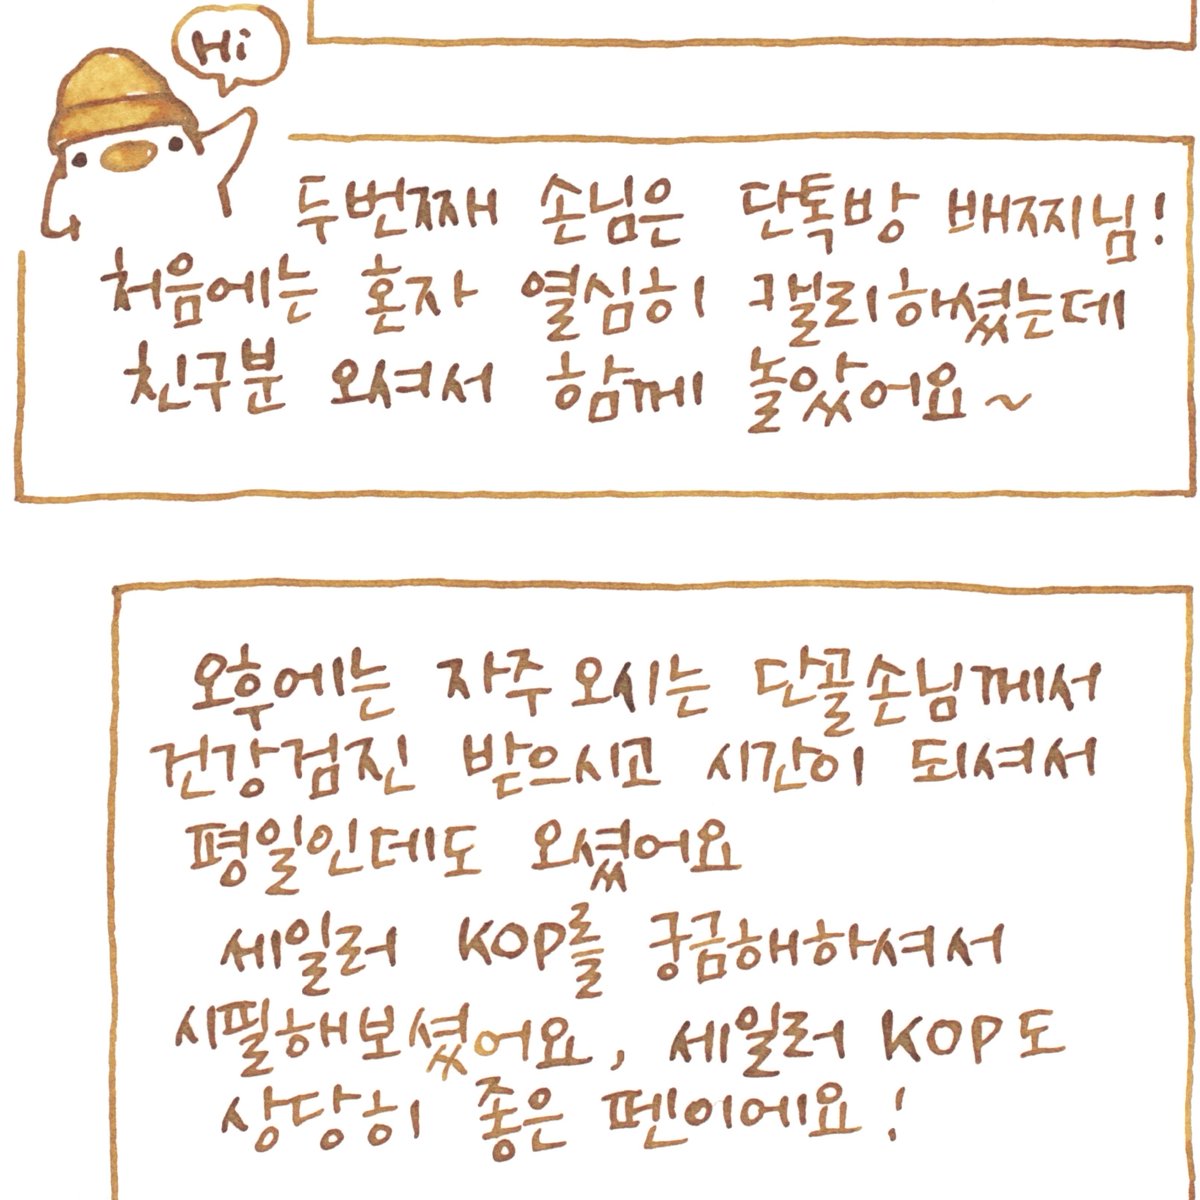 Hi
두번째 손님은 단톡방 배찌님!
처음에는 혼자 열심히 캘리하셨는데
친구분 오셔서 함께 놀았어요~
오후에는 자주 오시는 단골손님께서
건강검진 받으시고 시간이 되셔서
평일인데도 오셨어요
세일러 KOP를 궁금해하셔서
시필해보셨어요, 세일러 KOP도
상당히 좋은 펜이에요!